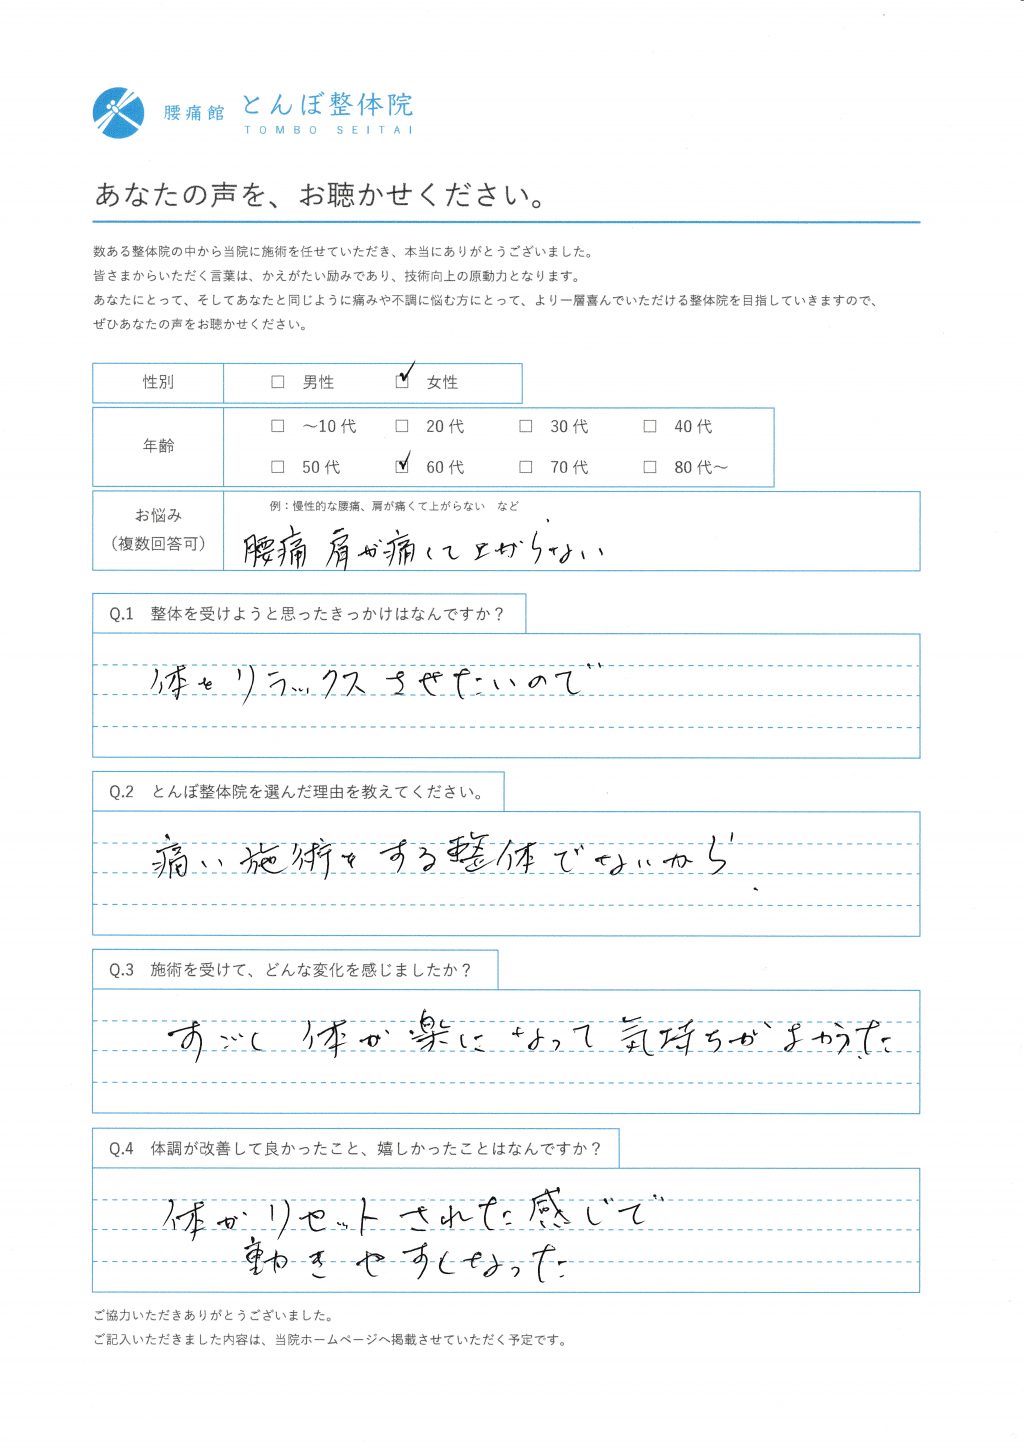 腰痛館 とんぼ整体院
TOMBO SEITAI
あなたの声を、お聴かせください。
数ある整体院の中から当院に施術を任せていただき、本当にありがとうございました。
皆さまからいただく言葉は、かえがたい励みであり、技術向上の原動力となります。
あなたにとって、そしてあなたと同じように痛みや不調に悩む方にとって、より一層喜んでいただける整体院を目指していきますので、
ぜひあなたの声をお聴かせください。
性別 □ 男性 ☑ 女性
年齢
□ ～10代 □ 20代 □ 30代 □ 40代
□ 50代 ☑ 60代 □ 70代 □ 80代～
お悩み
（複数回答可）
例：慢性的な腰痛、肩が痛くて上がらない など
腰痛 肩が痛くて上がらない
Q.1 整体を受けようと思ったきっかけはなんですか？
体をリラックスさせたいので
Q.2 とんぼ整体院を選んだ理由を教えてください。
痛い施術をする整体でないから
Q.3 施術を受けて、どんな変化を感じましたか？
すごく 体が楽になって気持ちがよかった
Q.4 体調が改善して良かったこと、嬉しかったことはなんですか？
体がリセットされた感じで
動きやすくなった
ご協力いただきありがとうございました。
ご記入いただきました内容は、当院ホームページへ掲載させていただく予定です。